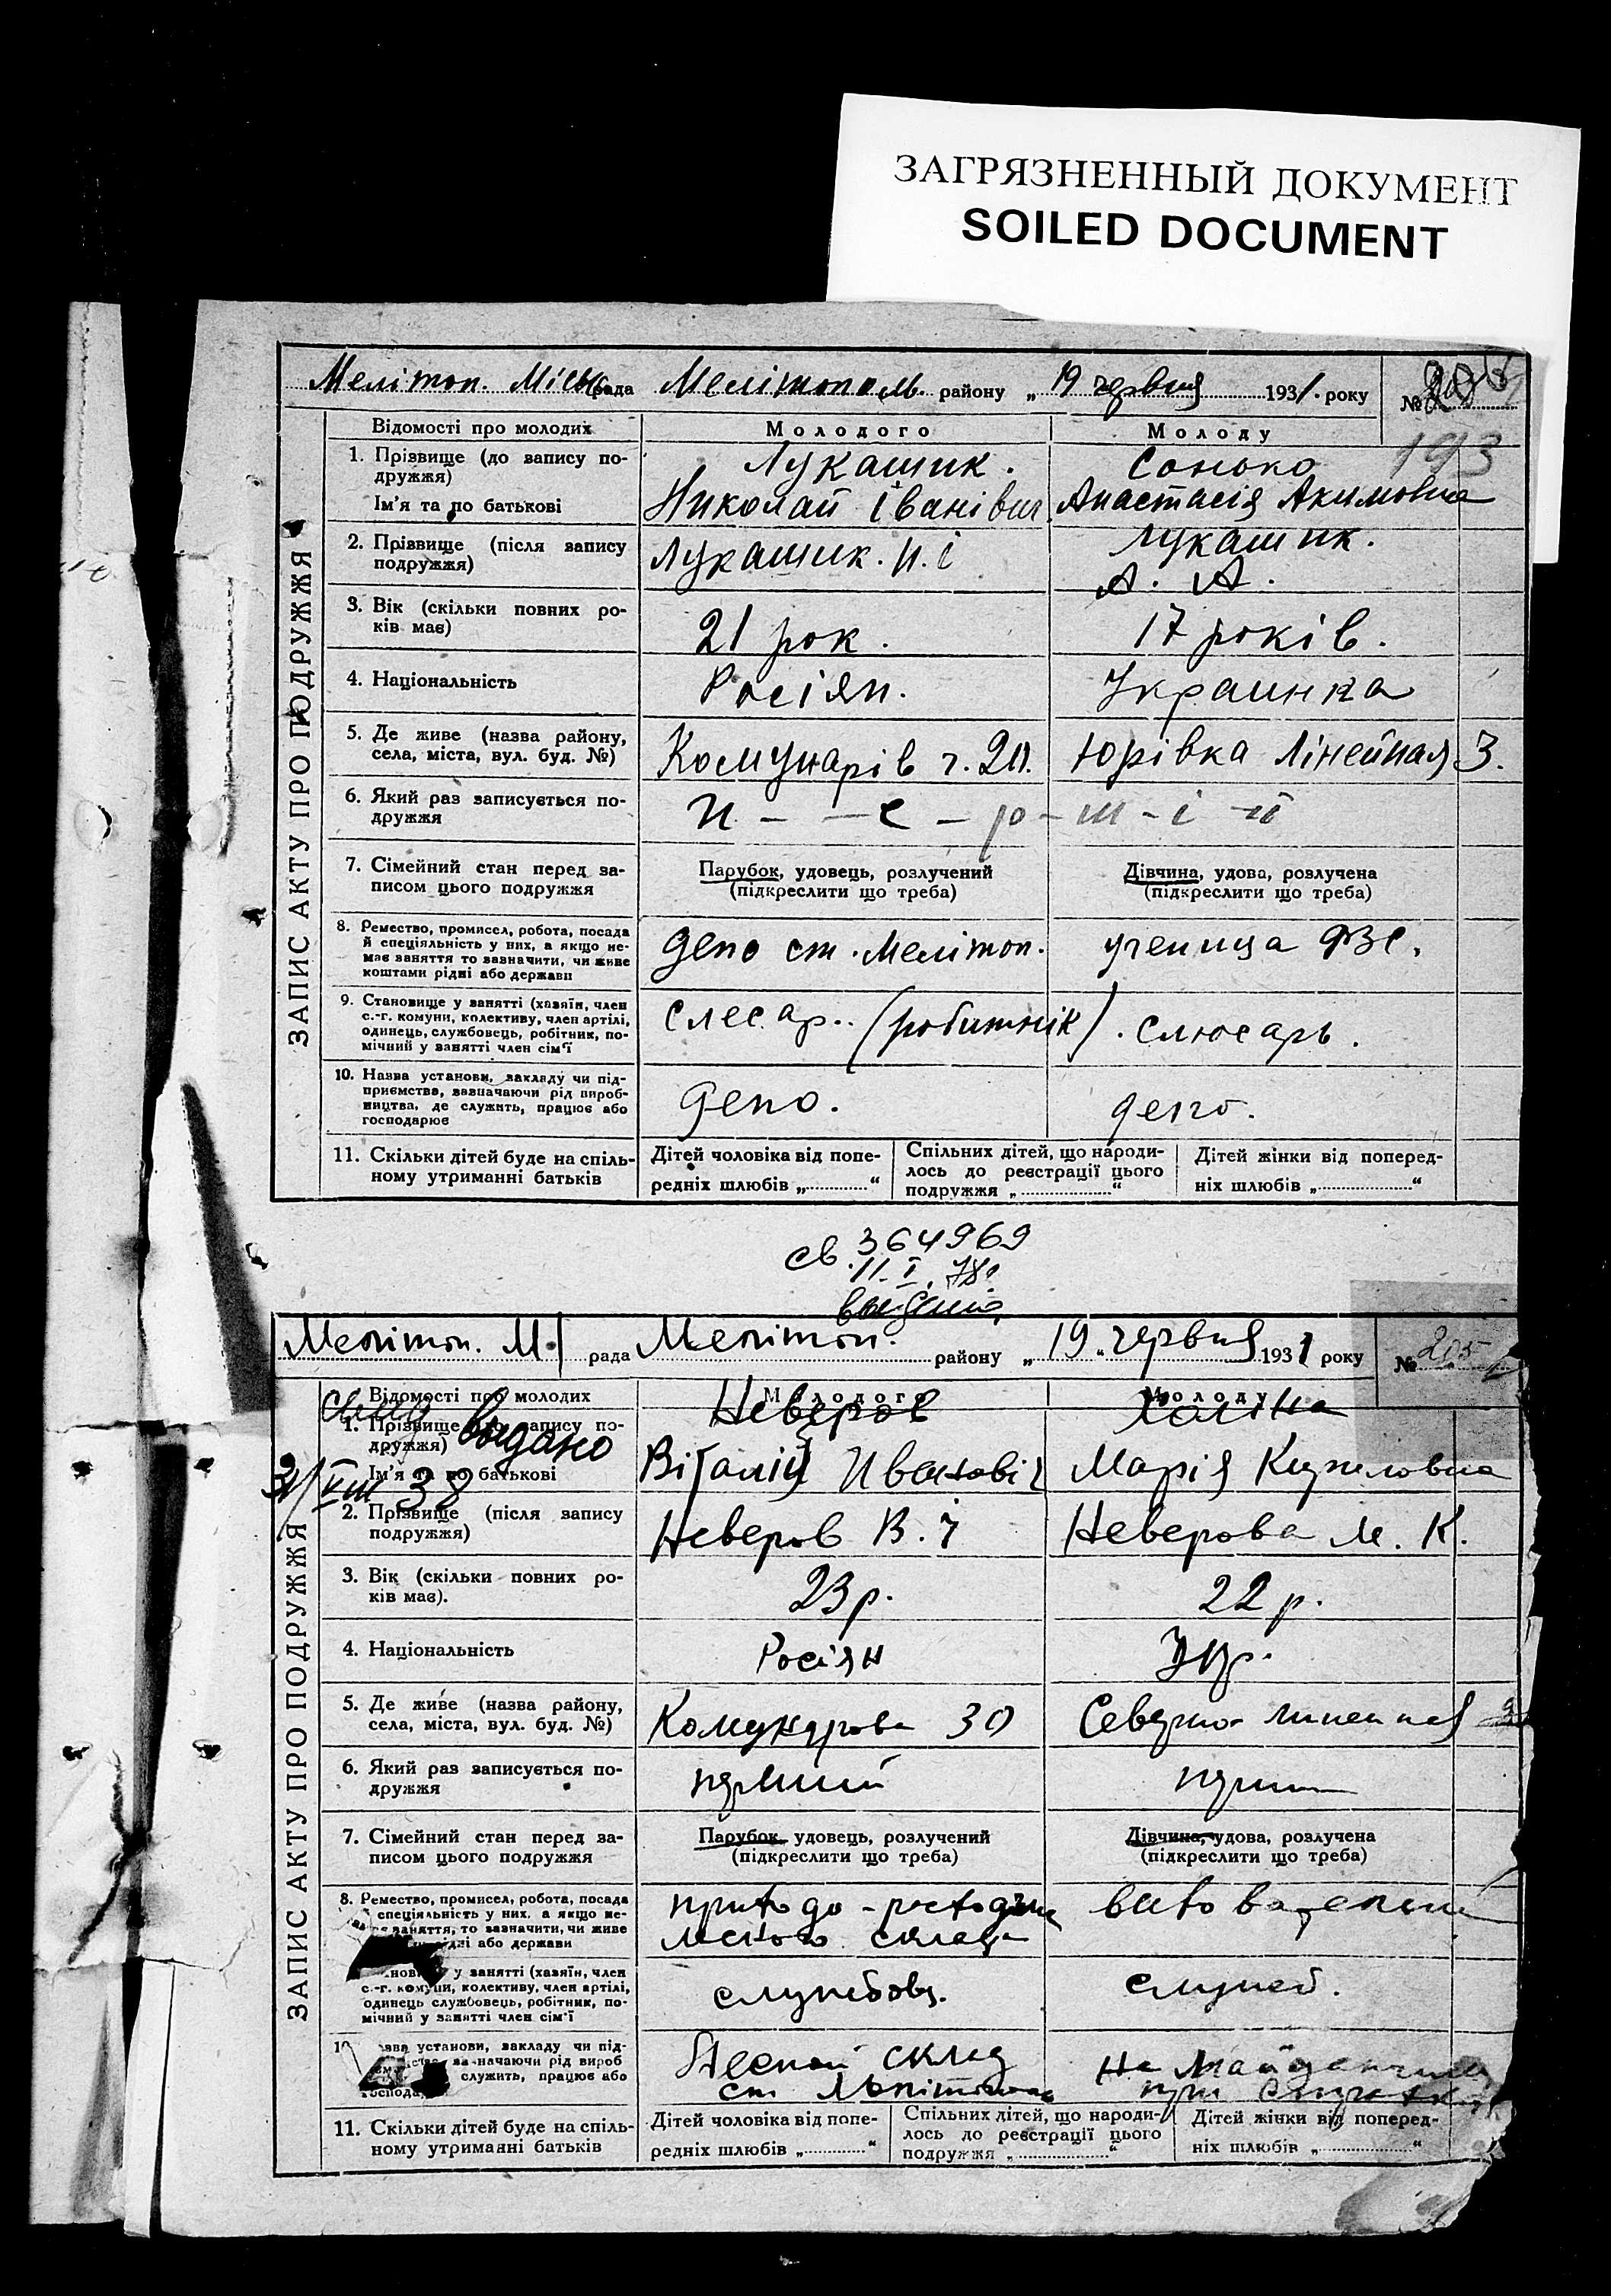 ЗАГРЯЗНЕННЫЙ ДОКУМЕНТ
SOILED DOCUMENT
Мелітоп. Міськ рада Мелітополь. району „ 19 червня 1931. року №
193
ЗАПИС АКТУ ПРО ПОДРУЖЖЯ
Відомості про молодих Молодого Молоду
1. Прізвище (до запису по- Лукашик. Сонько
дружжя)
Ім'я та по батькові Николай Іванівич Анастасія Акимовна
2. Прізвище (після запису Лукашик. Н. І Лукашик.
подружжя) А. А.
3. Вік (скільки повних ро- 21 рок. 17 років.
ків має)
4. Національність Росіян. Украинка
5. Де живе (назва району, Комунарів ч. 20. Юрівка Лінейная 3.
села, міста, вул. буд. №)
6. Який раз записується по- п - е - р - ш - і - й
дружжя
7. Сімейний стан перед за- Парубок, удовець, розлучений Дівчина, удова, розлучена
писом цього подружжя (підкреслити що треба) (підкреслити що треба)
8. Ремество, промисел, робота, посада депо ст. Мелітоп. ученица ФЗС.
й спеціяльність у них, а якщо не-
має заняття то зазначити, чи живе
коштами рідні або держави
9. Становище у занятті (хазяїн, член слесар.. (робитнік). слюсарь.
с.-г. комуни, колективу, член артілі,
одинець, службовець, робітник, по-
мічний у занятті член сім'ї
10. Назва установи, закладу чи під- депо. депо.
приємства, зазначаючи рід вироб-
ництва, де служить, працює або
господарює
11. Скільки дітей буде на спіль- Дітей чоловіка від попе- Спільних дітей, що народи- Дітей жінки від поперед-
ному утриманні батьків редніх шлюбів „ “ лось до реєстрації цього ніх шлюбів „ “
подружжя „ “
св. 364969
11. I. 78
Мелітоп. М. рада Мелітоп. району „ 19 „ червня 1931 року № 205
ЗАПИС АКТУ ПРО ПОДРУЖЖЯ
Відомості про молодих Молодого Молоду
1. Прізвище (до запису по- Неверов Халіна
дружжя) выдано
Ім'я та по батькові Віталій Иванові ч Марія Кириловна
VIII 38
2. Прізвище (після запису Неверов В. І Неверова М. К.
подружжя)
3. Вік (скільки повних ро- 23 р. 22 р.
ків має).
4. Національність Росіян Укр.
5. Де живе (назва району, Комунарова 30 Северно-линейная
села, міста, вул. буд. №)
6. Який раз записується по- перший перш
дружжя
7. Сімейний стан перед за- Парубок, удовець, розлучений Дівчина, удова, розлучена
писом цього подружжя (підкреслити що треба) (підкреслити що треба)
8. Ремество, промисел, робота, посада
спеціяльність у них, а якщо не-
заняття, то зазначити, чи живе
або держави
у занятті (хазяїн, член службовц. служб.
с.-г. комуни, колективу, член артілі,
одинець службовець, робітник, по-
мічний у занятті член сім'ї
установи, закладу чи під- Лесной склад на
зазначаючи рід вироб ст. Мелітополь при
служить, працює або
11. Скільки дітей буде на спіль- Дітей чоловіка від попе- Спільних дітей, що народи- Дітей жінки від поперед-
ному утриманні батьків редніх шлюбів „ “ лось до реєстрації цього ніх шлюбів „ “
подружжя „ “